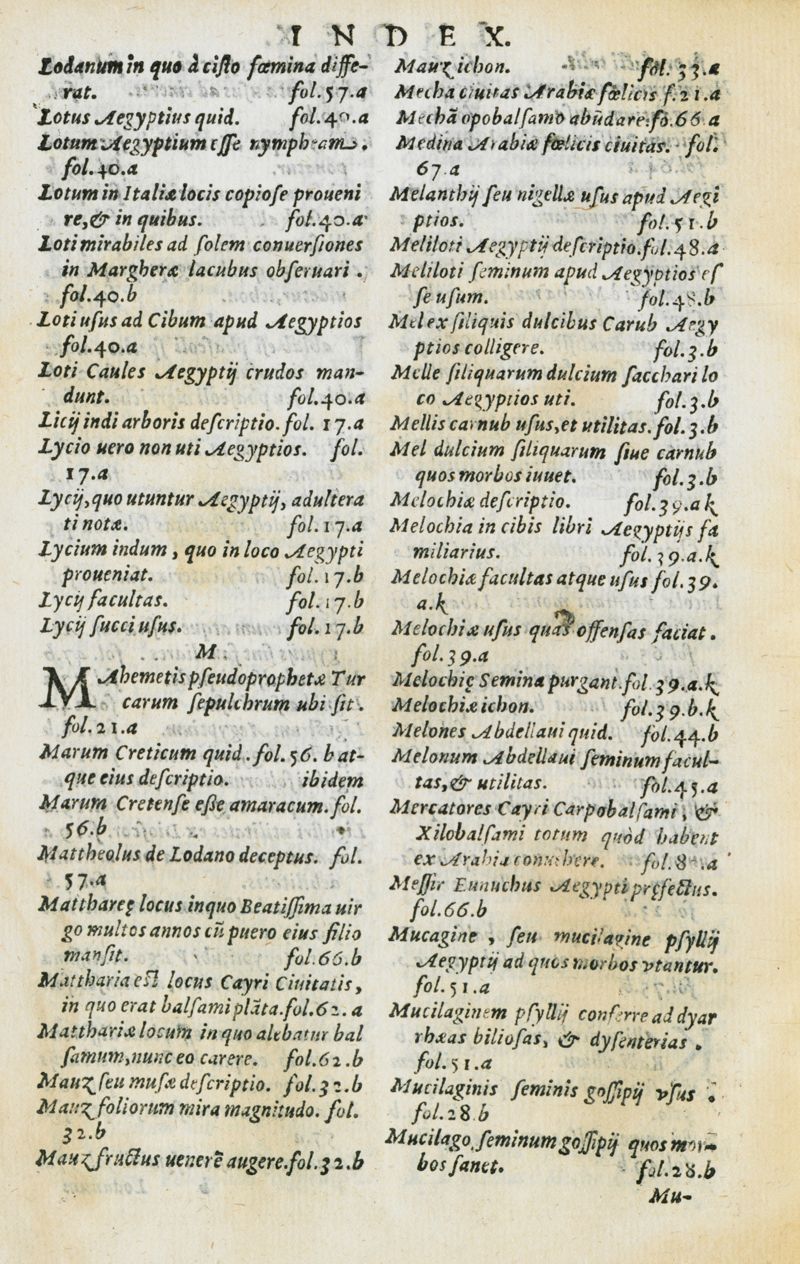 INDEX.
Lodanum in quo à cisto fœmina diffe-
rat. fol.57.a
Lotus Aegyptius quid. fol.40.a
Lotum Aegyptium esse nympheam.
fol.40.a
Lotum in Italiæ locis copiose proueni
re,& in quibus. fol.40.a
Loti mirabiles ad solem conuersiones
in Margheræ lacubus obseruari.
fol.40.b
Loti usus ad Cibum apud Aegyptios
fol.40.a
Loti Caules Aegyptij crudos man-
dunt. fol.40.a
Licij indi arboris descriptio.fol. 17.a
Lycio uero non uti Aegyptios. fol.
17.a
Lycij,quo utuntur Aegyptij, adultera
ti notæ. fol.17.a
Lycium indum, quo in loco Aegypti
proueniat. fol.17.b
Lycij facultas. fol.17.b
Lycij succi usus. fol.17.b
M.
MAhemetis pseudoprophetæ Tur
carum sepulchrum ubi sit.
fol.21.a
Marum Creticum quid.fol.56. b at-
que eius descriptio. ibidem
Marum Cretense eße amaracum.fol.
56.b
Mattheolus de Lodano deceptus. fol.
57.a
Matthareę locus in quo Beatissima uir
go multos annos cū puero eius filio
mansit. fol.66.b
Mattharia est locus Cayri Ciuitatis,
in quo erat balsami plāta.fol.62. a
Matthariæ locum in quo alebatur bal
samum,nunc eo carere. fol.62.b
Mauz seu musæ descriptio. fol.32.b
Mauz foliorum mira magnitudo. fol.
32.b
Mauz fructus uenerē augere.fol.32.b
Mauz ichon. fol. 33.a
Mecha ciuitas Arabiæ fœlicis f.21.a
Mechā opobalsamo abūdare.fo.66 a
Medina Arabiæ fœlicis ciuitas. fol.
67.a
Melanthij seu nigellæ usus apud Aegi
ptios. fol.51.b
Meliloti Aegyptij descriptio.fol.48.a
Meliloti seminum apud Aegyptios es
se usum. fol.48.b
Mel ex siliquis dulcibus Carub Aegy
ptios colligere. fol.3.b
Melle siliquarum dulcium sacchari lo
co Aegyptios uti. fol.3.b
Mellis carnub usus,et utilitas.fol.3.b
Mel dulcium siliquarum siue carnub
quos morbos iuuet. fol.3.b
Melochiæ descriptio. fol.39.a k
Melochia in cibis libri Aegyptijs fa
miliarius. fol.39.a.k
Melochiæ facultas atque usus fol.39.
a.k
Melochiæ usus quas offensas faciat.
fol.39.a
Melochię Semina purgant.fol 39.a.k
Melochiæ ichon. fol.39.b.k
Melones Abdellaui quid. fol.44.b
Melonum Abdellaui seminum facul-
tas,& utilitas. fol.45.a
Mercatores Cayri Carpobalsami, &
Xilobalsami totum quòd habent
ex Arabia conuehere. fol.8 .a
Messir Eunuchus Aegypti pręfectus.
fol.66.b
Mucagine, seu mucilagine psyllij
Aegyptij ad quos morbos vtantur.
fol.51.a
Mucilaginem psyllij conferre ad dyar
rhæas biliosas, & dysenterias.
fol.51.a
Mucilaginis seminis gossipij vsus.
fol.28.b
Mucilago,seminum gossipij quos mor-
bos sanet. fol.28.b
Mu-